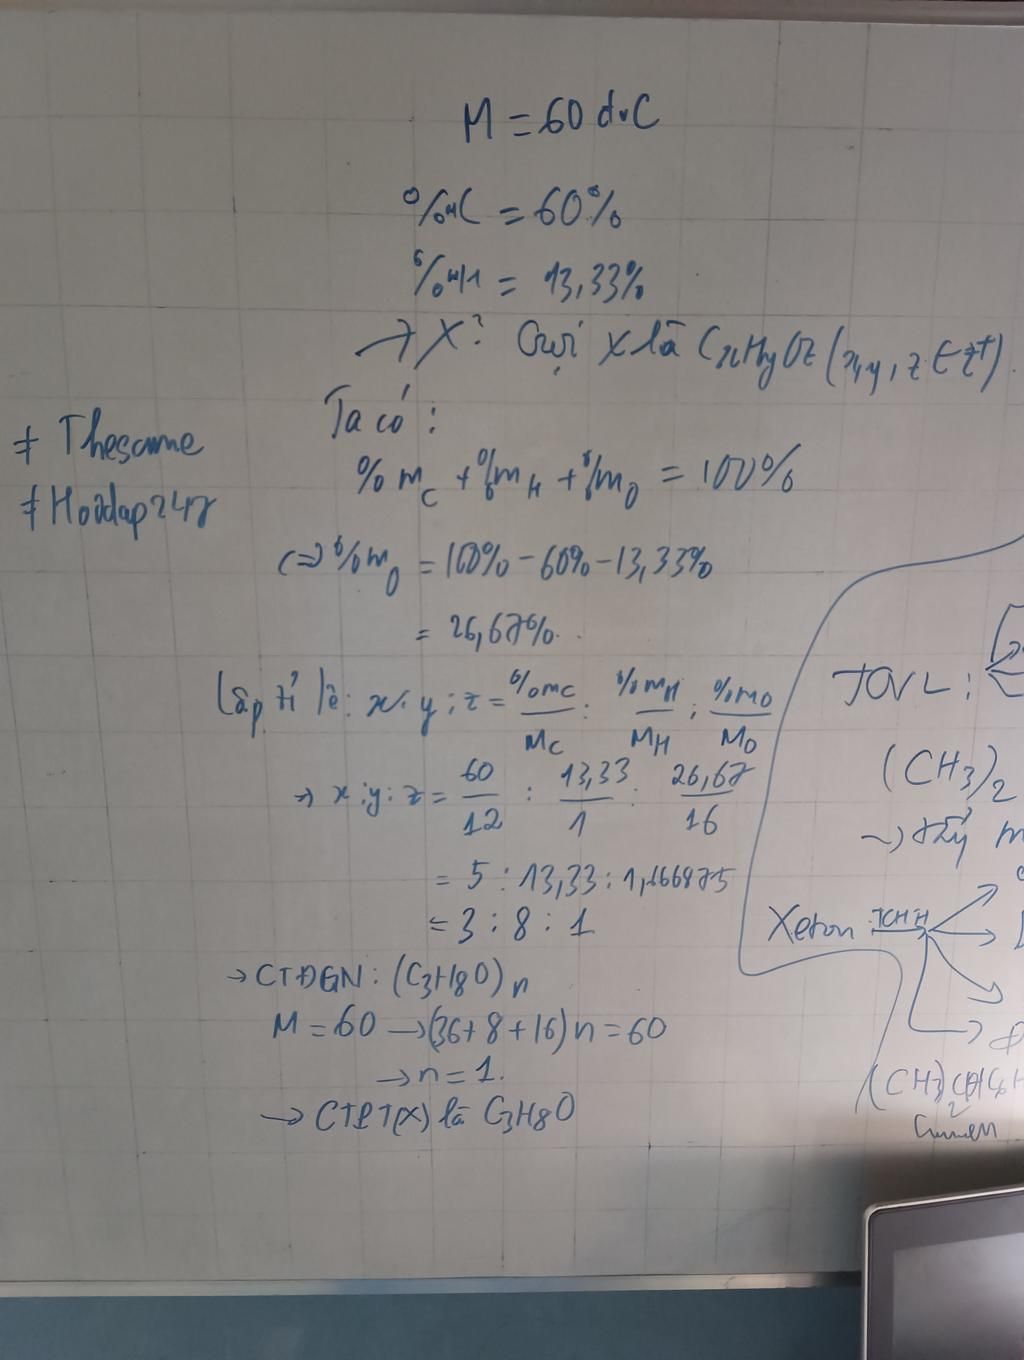 M = 60 đvC
%mC = 60%
%mH = 13,33%
→ X? Gọi X là CxHyOz (x,y,z ∈ Z+).
Ta có:
≠ Thesame
≠ Hoidap247
%mC + %mH + %mO = 100%
(=) %mO = 100% - 60% - 13,33%
= 26,67%.
Lập tỉ lệ: x:y:z = %mC/MC : %mH/MH : %mO/MO
→ x:y:z = 60/12 : 13,33/1 : 26,67/16
= 5 : 13,33 : 1,666875
= 3 : 8 : 1
→ CTĐGN: (C3H8O)n
M = 60 → (36 + 8 + 16)n = 60
→ n = 1.
→ CTPT(X) là C3H8O
TCVL:
(CH3)2
Xeton TCHH
(CH3)2CHC6H
Cumen